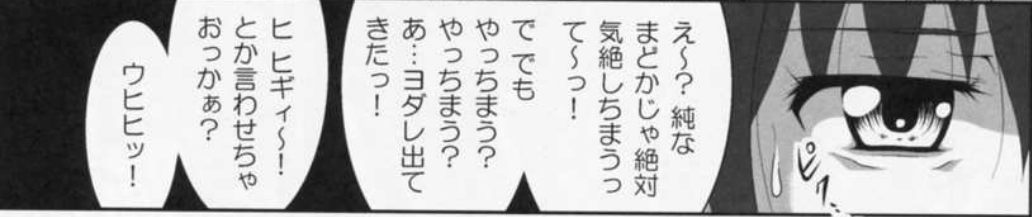 え～？純な
まどかじゃ絶対
気絶しちまうっ
て～っ！
で でも
やっちまう？
やっちまう？
あ…ヨダレ出て
きたっ！
ヒ ヒギィ～！
とか言わせちゃ
おっかぁ？
ウヒヒッ！
ピクッ…